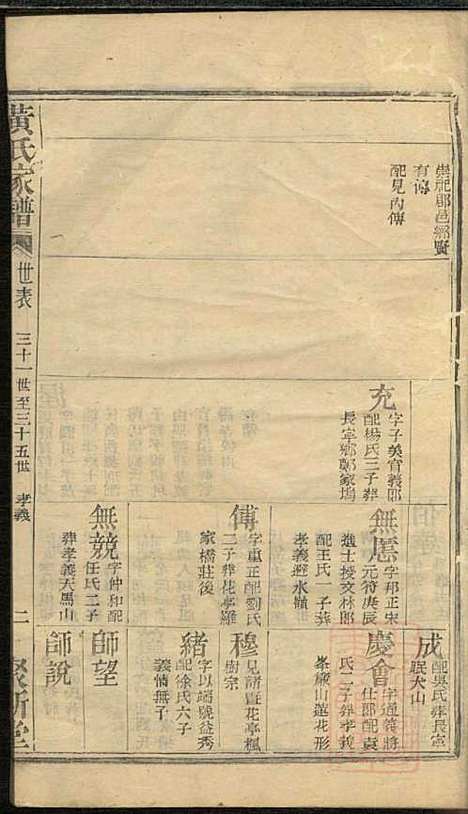 崇祀郡邑鄉賢
有傳
配見內傳
充
字子美官義郎
配楊氏三子葬
長寧鄉鄭家塢
無
字邦正宋
元符庚辰
進士授文林郎
配王氏一子葬
孝義避水嶺
傅
字重正配劉氏
二子葬花亭羅
家橋莊後
無競
字仲和配
任氏二子
葬孝義天馬山
成
配吳氏葬長寧
眠犬山
慶會
字通等將
仕郎配袁
氏二子葬孝義
峯巖山蓮花形
穆
見諸暨花亭楓
樹宗
緒
字以端號益秀
配徐氏六子
義倩無子
師望
師說
黃氏家譜
世表
三十一世至三十五世
孝義
二
聚斯堂